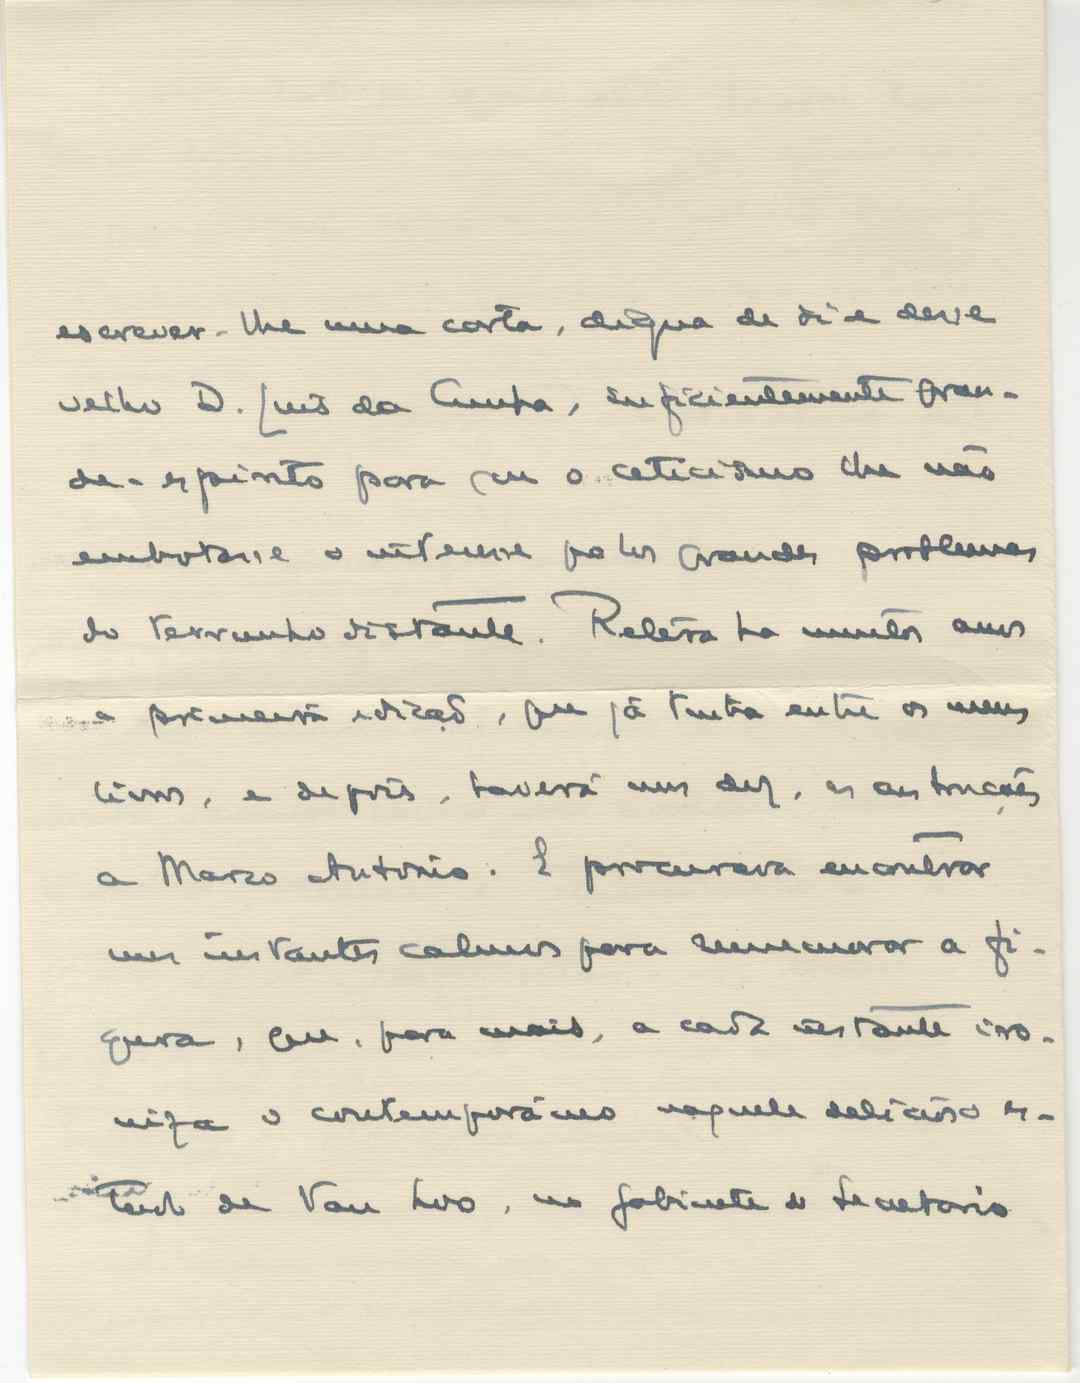 escrever-lhe uma carta, digna de si e desse
velho D. Luís da Cunha, suficientemente gran-
de-espirito para que o ceticismo lhe não
embotasse o interesse pelos grandes problemas
do terrunho distante. Relera ha muitos anos
a primeira edição, que já tinha entre os meus
livros, e depois, haverá uns dez, as instruções
a Marco Antonio. E procurava encontrar
uns instantes calmos para rememorar a fi-
gura, que, para mais, a cada instante iro-
niza o contemporâneo naquele delicioso es-
tudo de Van Loo, no gabinete do Secretario